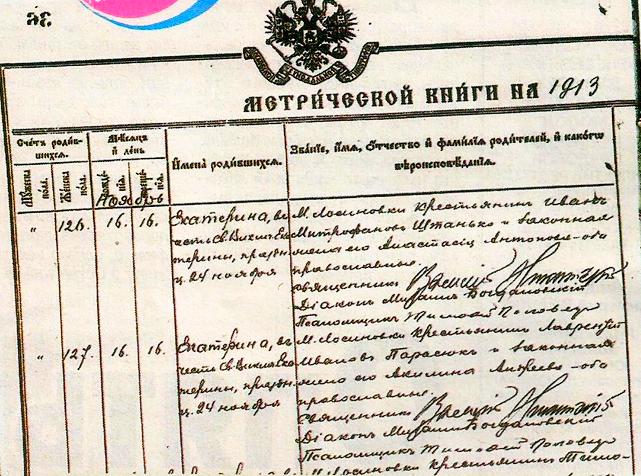 МЕТРИЧЕСКОЙ КНИГИ НА 1913
Счетъ родив-
шихся.
Мѣсяцъ
и день
Имена родившихся.
Званіе, имя, отчество и фамилія родителей, и какого
вѣроисповѣданія.
Мужеска
пола.
Женска
пола.
Ноябрь
" 126. 16. 16.
Екатерина, въ
честь Св. Вмкм. Ека
терины, праздн.
ц. 24 ноября
М. Лосиновки крестьянин Иван
Митрофановъ Штанько и законная
жена его Анастасія Антонова - оба
православные.
Священник Василій
Діакон Михаил Богдановскій
Псаломщик
" 127. 16. 16.
Екатерина, въ
честь Св. Вмкм. Ека
терины, праздн.
ц. 24 ноября
М. Лосиновки крестьянин Лаврентій
Иванов Парасюк и законная
жена его Акилина Андреева - оба
православные.
Священник Василій
Діакон Михаил Богдановскій
Псаломщик
М. Лосиновки крестьянин